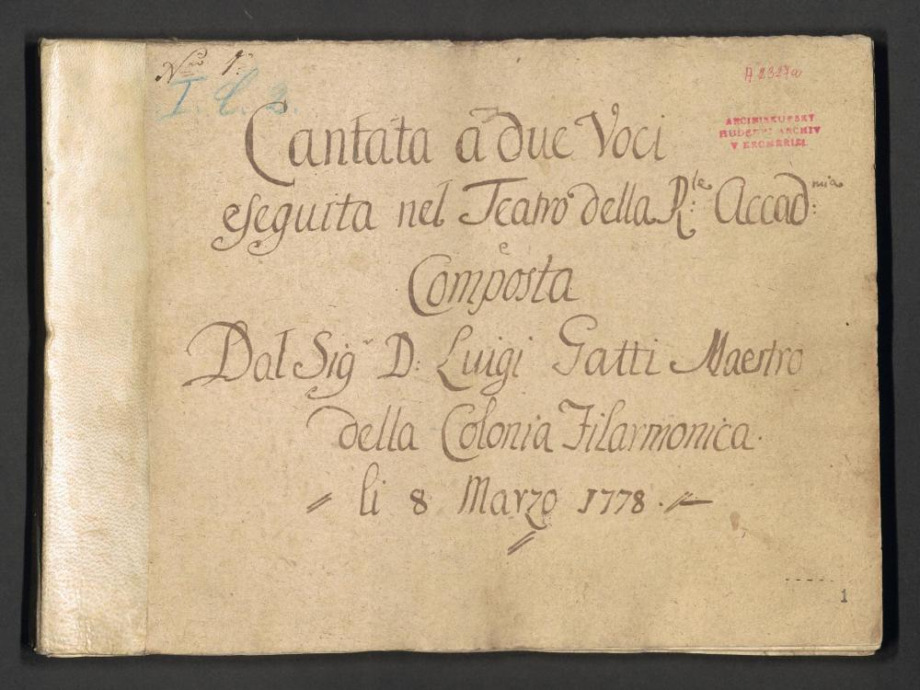 Nro 1.
I. C. 2.
A 2327a
ARCIBISKUPSKÝ
HUDEBNÍ ARCHIV
V KROMĚŘÍŽI
Cantata a due Voci
eseguita nel Teatro della R:le Accad:mia
e
Composta
Dal Sigr D: Luigi Gatti Maestro
della Colonia Filarmonica.
li 8 Marzo 1778.
1